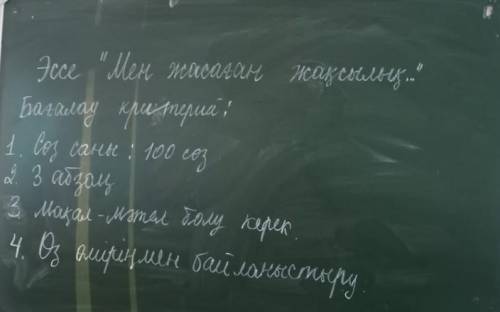 Эссе "Мен жасаған жақсылық.."
Бағалау критерий:
1. Сөз саны : 100 сөз
2. 3 абзац
3. Мақал-мәтел болу керек.
4. Өз өміріңмен байланыстыру.